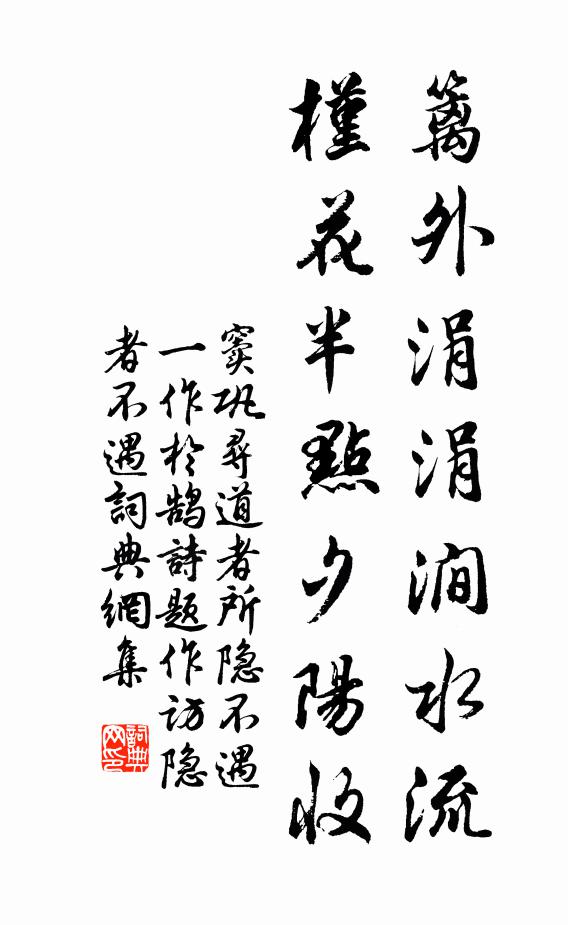 籬外涓涓澗水流
槿花半點夕陽收
竇巩尋道者所隐不遇
一作於鵠詩題作訪隐
者不遇詞典網集
詞典网印